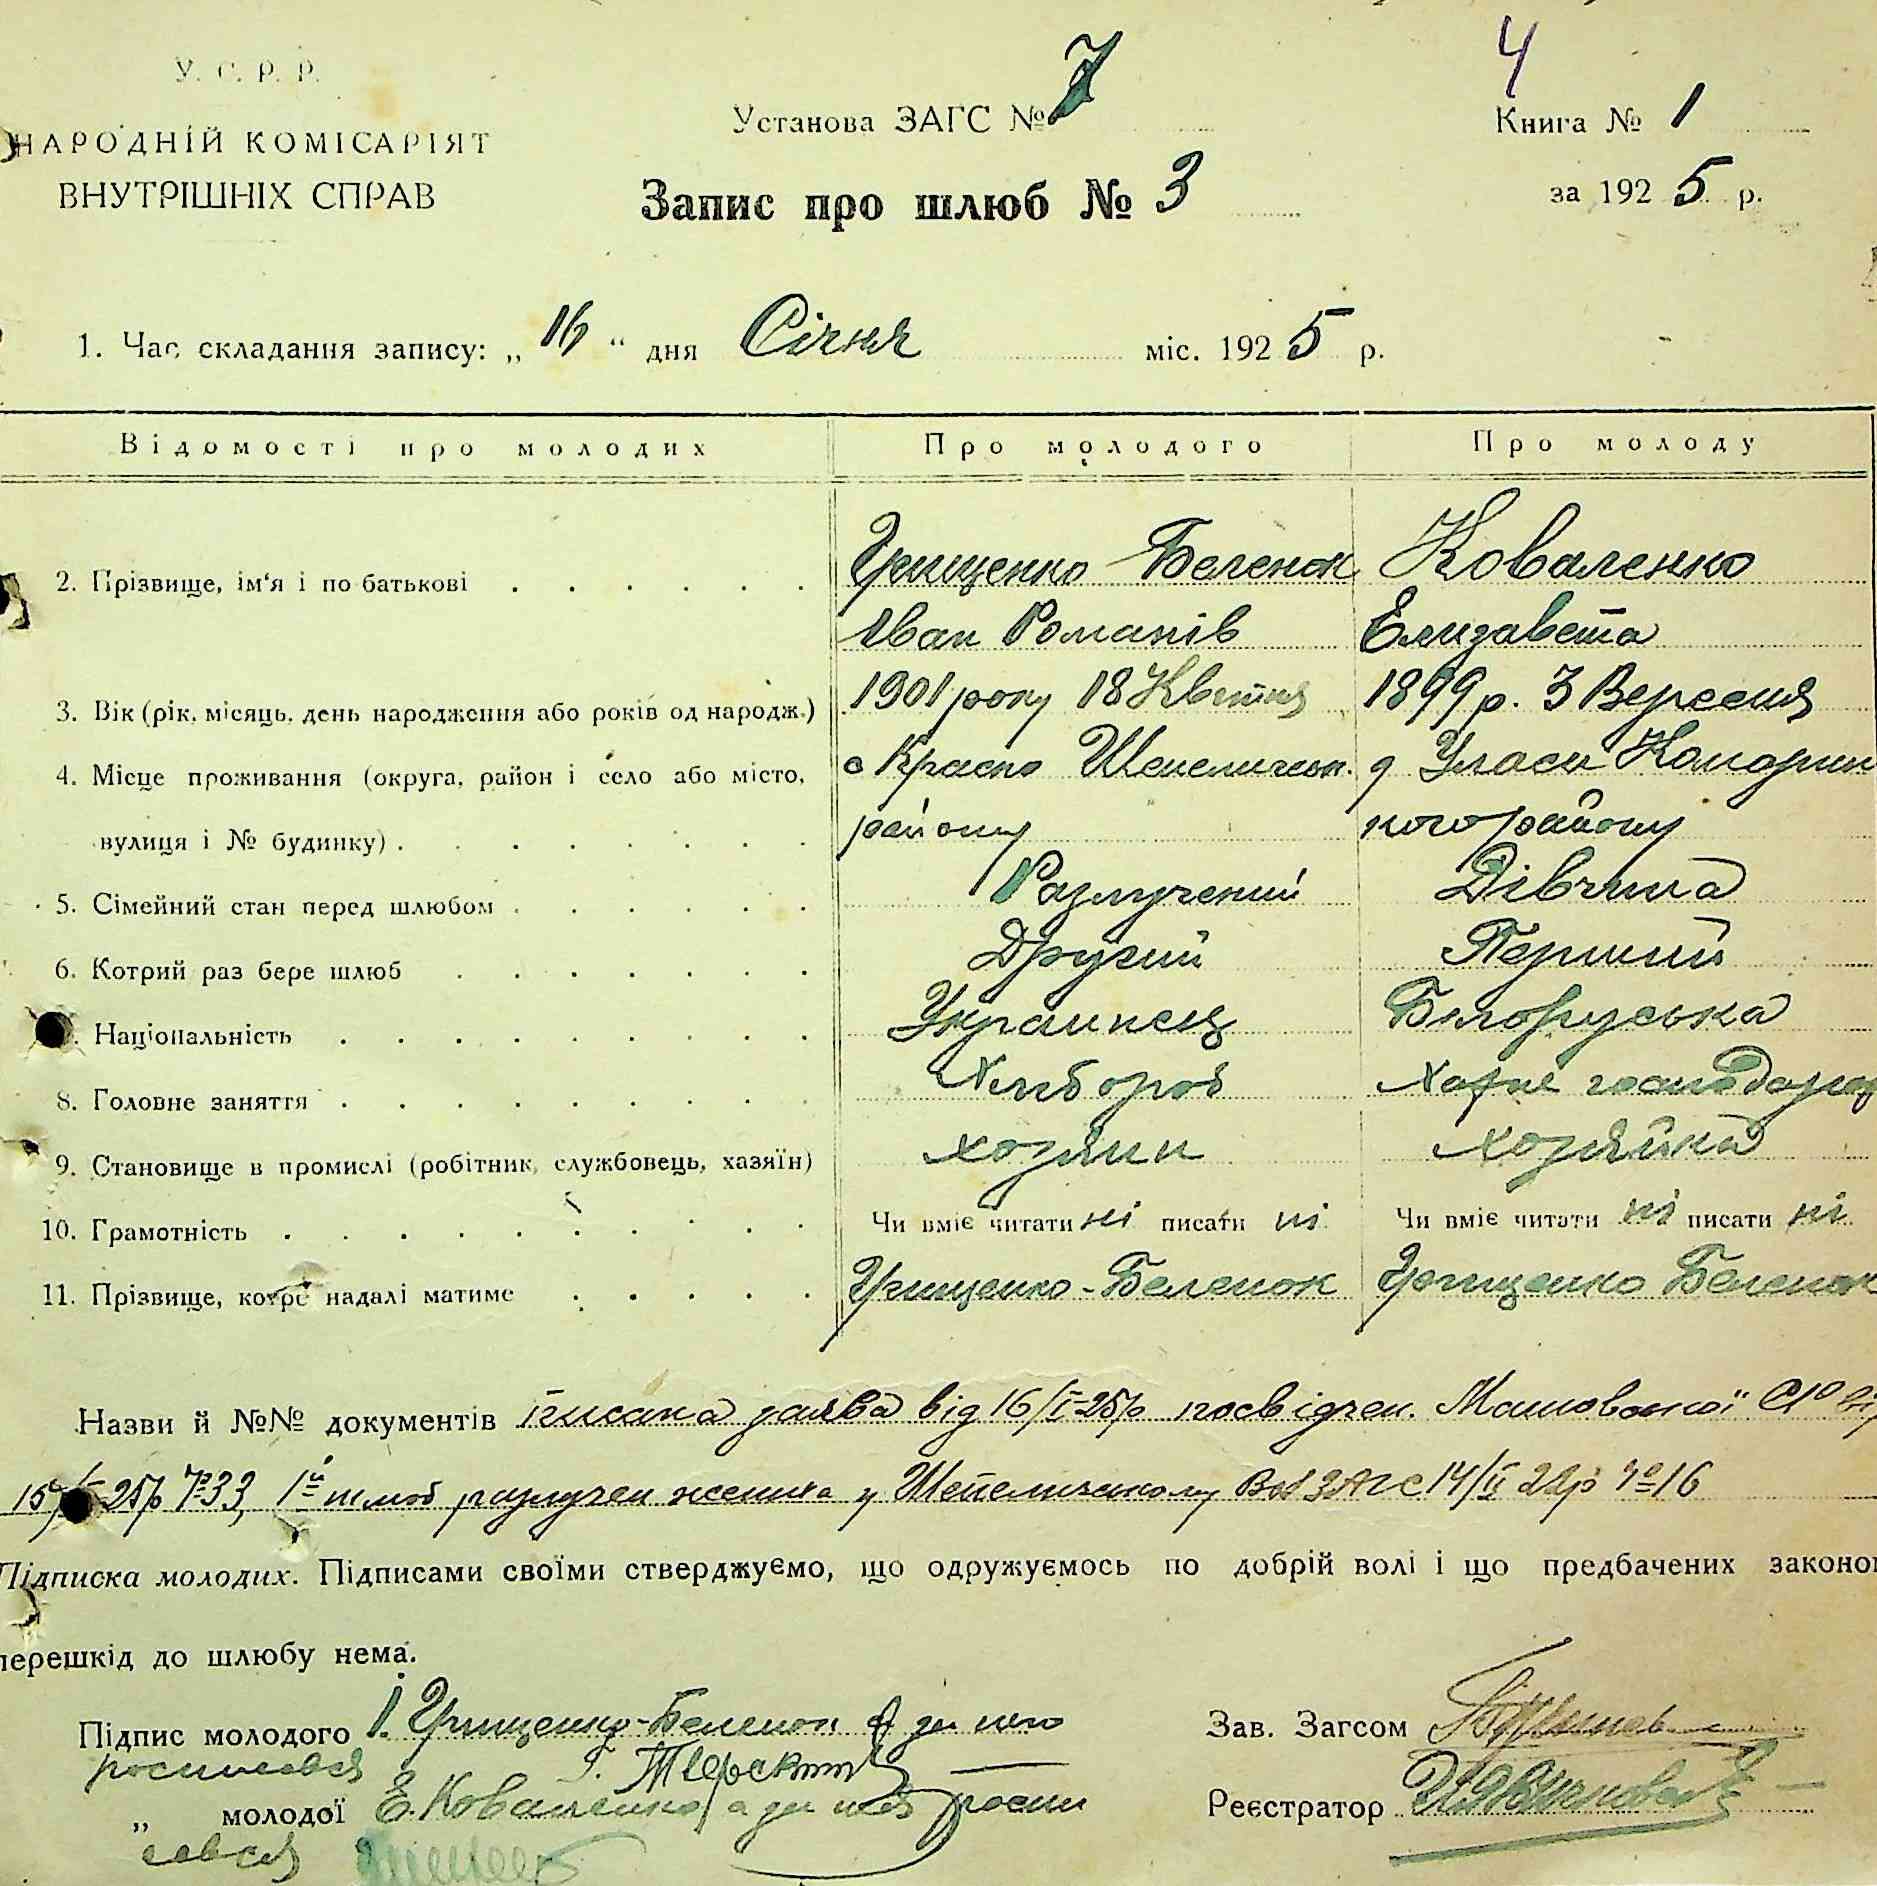 4
У. С. Р. Р.
НАРОДНІЙ КОМІСАРІЯТ
ВНУТРІШНІХ СПРАВ
Установа ЗАГС № 7
Запис про шлюб № 3
Книга № 1
за 1925 р.
1. Час складання запису: „16“ дня Січня міс. 1925 р.
Відомості про молодих Про молодого Про молоду
2. Прізвище, ім'я і по батькові Грищенко-Беленок Коваленко
Іван Романів Елизавета
3. Вік (рік, місяць, день народження або років од народж.) 1901 року 18 Квітня 1899 р. 3 Вересня
4. Місце проживання (округа, район і село або місто, с Красно Шепеличськ. д Уласи Комарин
вулиця і № будинку) району ского району
5. Сімейний стан перед шлюбом Разлучений Дівчина
6. Котрий раз бере шлюб Другий Перший
Національність Украинець Білоруська
8. Головне заняття Хлібороб Хатне господар
9. Становище в промислі (робітник, службовець, хазяїн) хозяин хозяйка
10. Грамотність Чи вміє читати ні писати ні Чи вміє читати ні писати ні
11. Прізвище, котре надалі матиме Грищенко-Беленок Грищенко Беленок
Назви й №№ документів писана заява від 16/I-25р посвідчен.
25р № 33, 1й шлюб разлучен жениха у Шепеличському ЗАГС 14/II 22р № 16
Підписка молодих. Підписами своїми стверджуємо, що одружуємось по добрій волі і що предбачених законо
перешкід до шлюбу нема.
Підпис молодого І. Грищенко-Беленок а за него
росписався
Зав. Загсом
„ молодої Е. Коваленко, а за неї роспи
сався
Реєстратор